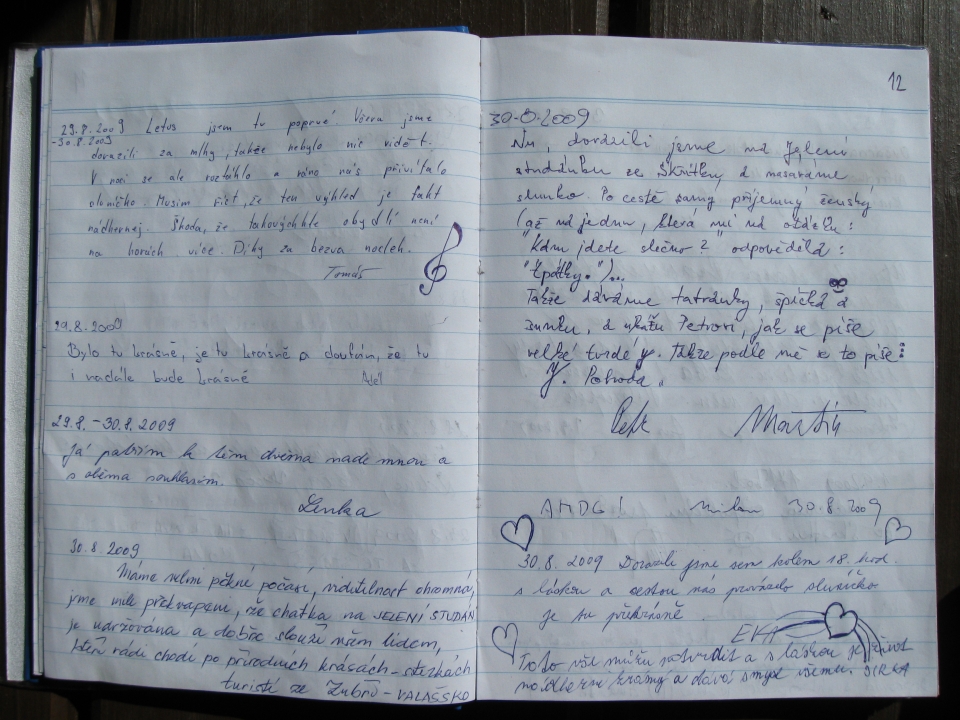 29.8.2009 Letos jsem tu poprvé. Včera jsme
-30.8.2009
dorazili za mlhy, takže nebylo nic vidět.
V noci se ale roztáhlo a ráno nás přivítalo
sluníčko. Musím říct, že ten výhled je fakt
nádhernej. Škoda, že takovýchhle obydlí není
na horách více. Díky za bezva nocleh.
Tomáš
29.8.2009
Bylo tu krásně, je tu krásně a doufám, že tu
i nadále bude krásně
29.8. – 30.8.2009
Já patřím k těm dvěma nade mnou a
s oběma souhlasím.
Lenka
30.8.2009
Máme velmi pěkné počasí, viditelnost ohromná,
jsme mile překvapeni, že chatka na JELENÍ STUDÁN
je udržována a dobře slouží všem lidem,
kteří rádi chodí po přírodních krásách – stezkách
turisté ze Zubří – VALAŠSKO
12
30.8.2009
Nu, dorazili jsme na Jelení
studánku ze Skřítku a
slunko. Po cestě samý příjemný ženský
(až na jednu, která mi na otázku:
"Kam jdete slečno?" odpověděla:
"Zpátky.")...
Takže dáváme tatranky, špíčka a
a ukážu Petrovi, jak se píše
velké tvrdé y. Takže podle mě se to píše:
Y. Pohoda.
Petr Martin
AMDG! Milan 30.8.2009
30.8.2009 Dorazili jsme sem kolem 18. hod.
s láskou a cestou nás provázelo sluníčko
je tu překrásně.
EVA
Toto vše můžu potvrdit a s láskou je život
krásný a dává smysl všemu. JIRKA